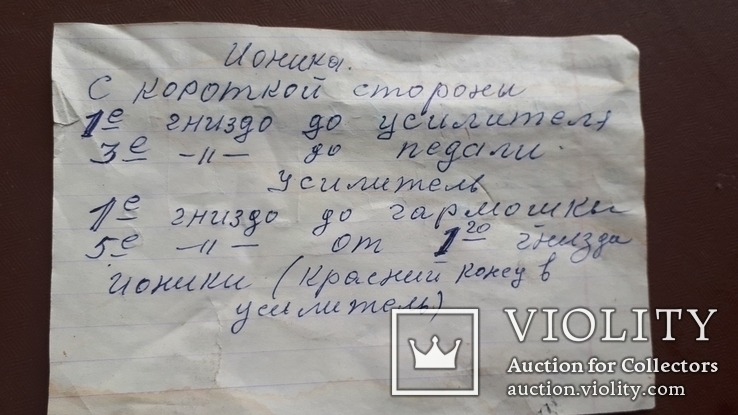 Ионика.
С короткой стороны
1е гниздо до усилителя
3е -〃- до педали.
Усилитель
1е гниздо до гармошки
5е -〃- от 1го гнизда
ионики (красний конец в
усилитель)
VIOLITY
Auction for Collectors
auction.violity.com